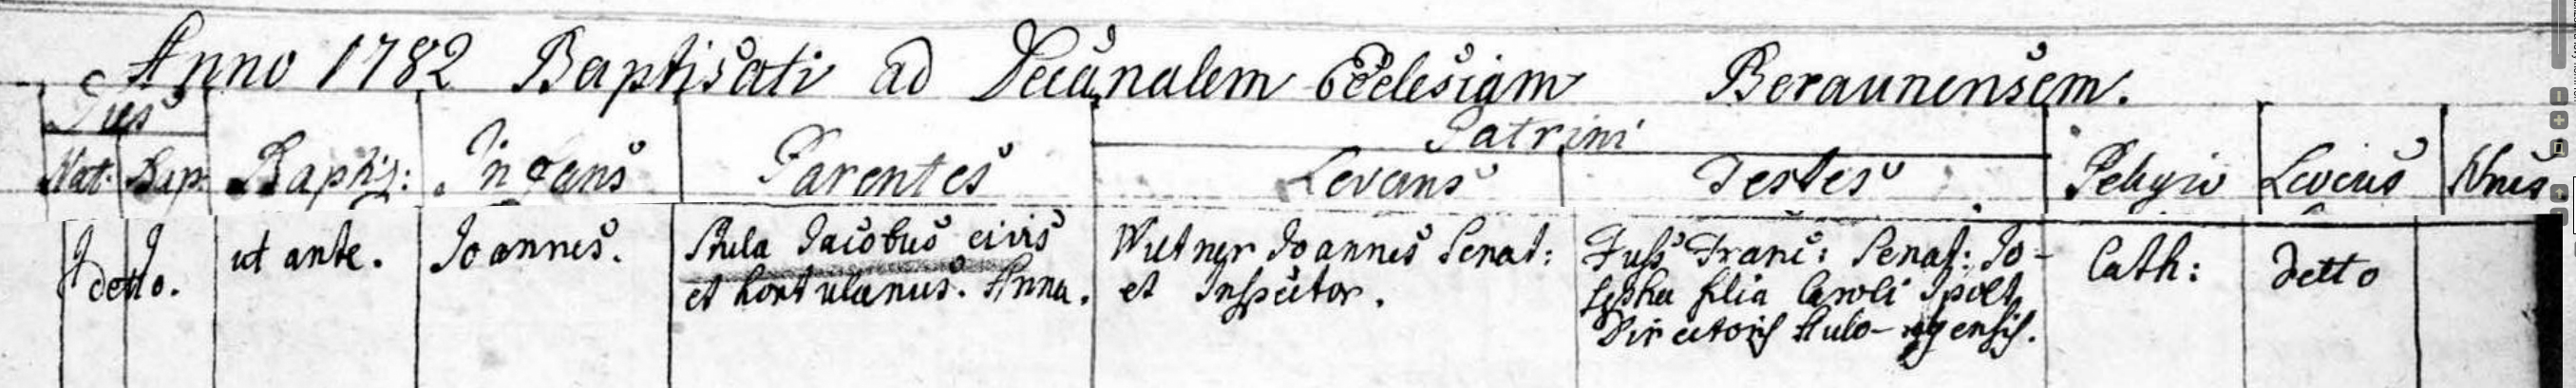 Anno 1782 Baptisati ad Decanalem Ecclesiam Beraunensem.
Dies
Patrini
Nat: Bap: Baptiz: Infans Parentes Levans Testes Religio Locus Nrus
detto. ut ante. Joannes. Jacobus civis Joannes Senat: Fuss Franc: Senat: Jo- Cath: detto
et hortulanus. Anna. et Inspector. sepha filia Caroli
Directoris